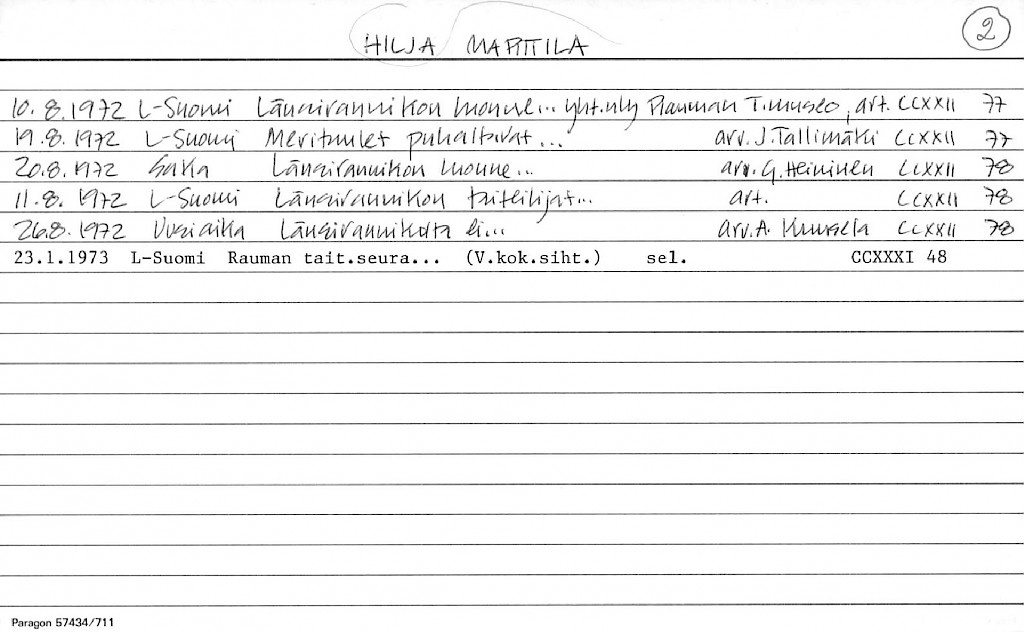 HILJA MARTTILA 2
10.8.1972 L-Suomi Länsirannikon luonne... yht.näy Rauman T.museo, art. CCXXII 77
19.8.1972 L-Suomi Merituulet puhaltavat... arv. J. Tallimäki CCXXII 77
20.8.1972 SaKa Länsirannikon luonne... arv. G. Heininen CCXXII 78
11.8.1972 L-Suomi Länsirannikon taiteilijat... art. CCXXII 78
26.8.1972 Uusi aika Länsirannikolta ei... arv. A. Kuusela CCXXII 78
23.1.1973 L-Suomi Rauman tait.seura... (V.kok.siht.) sel. CCXXXI 48
Paragon 57434/711